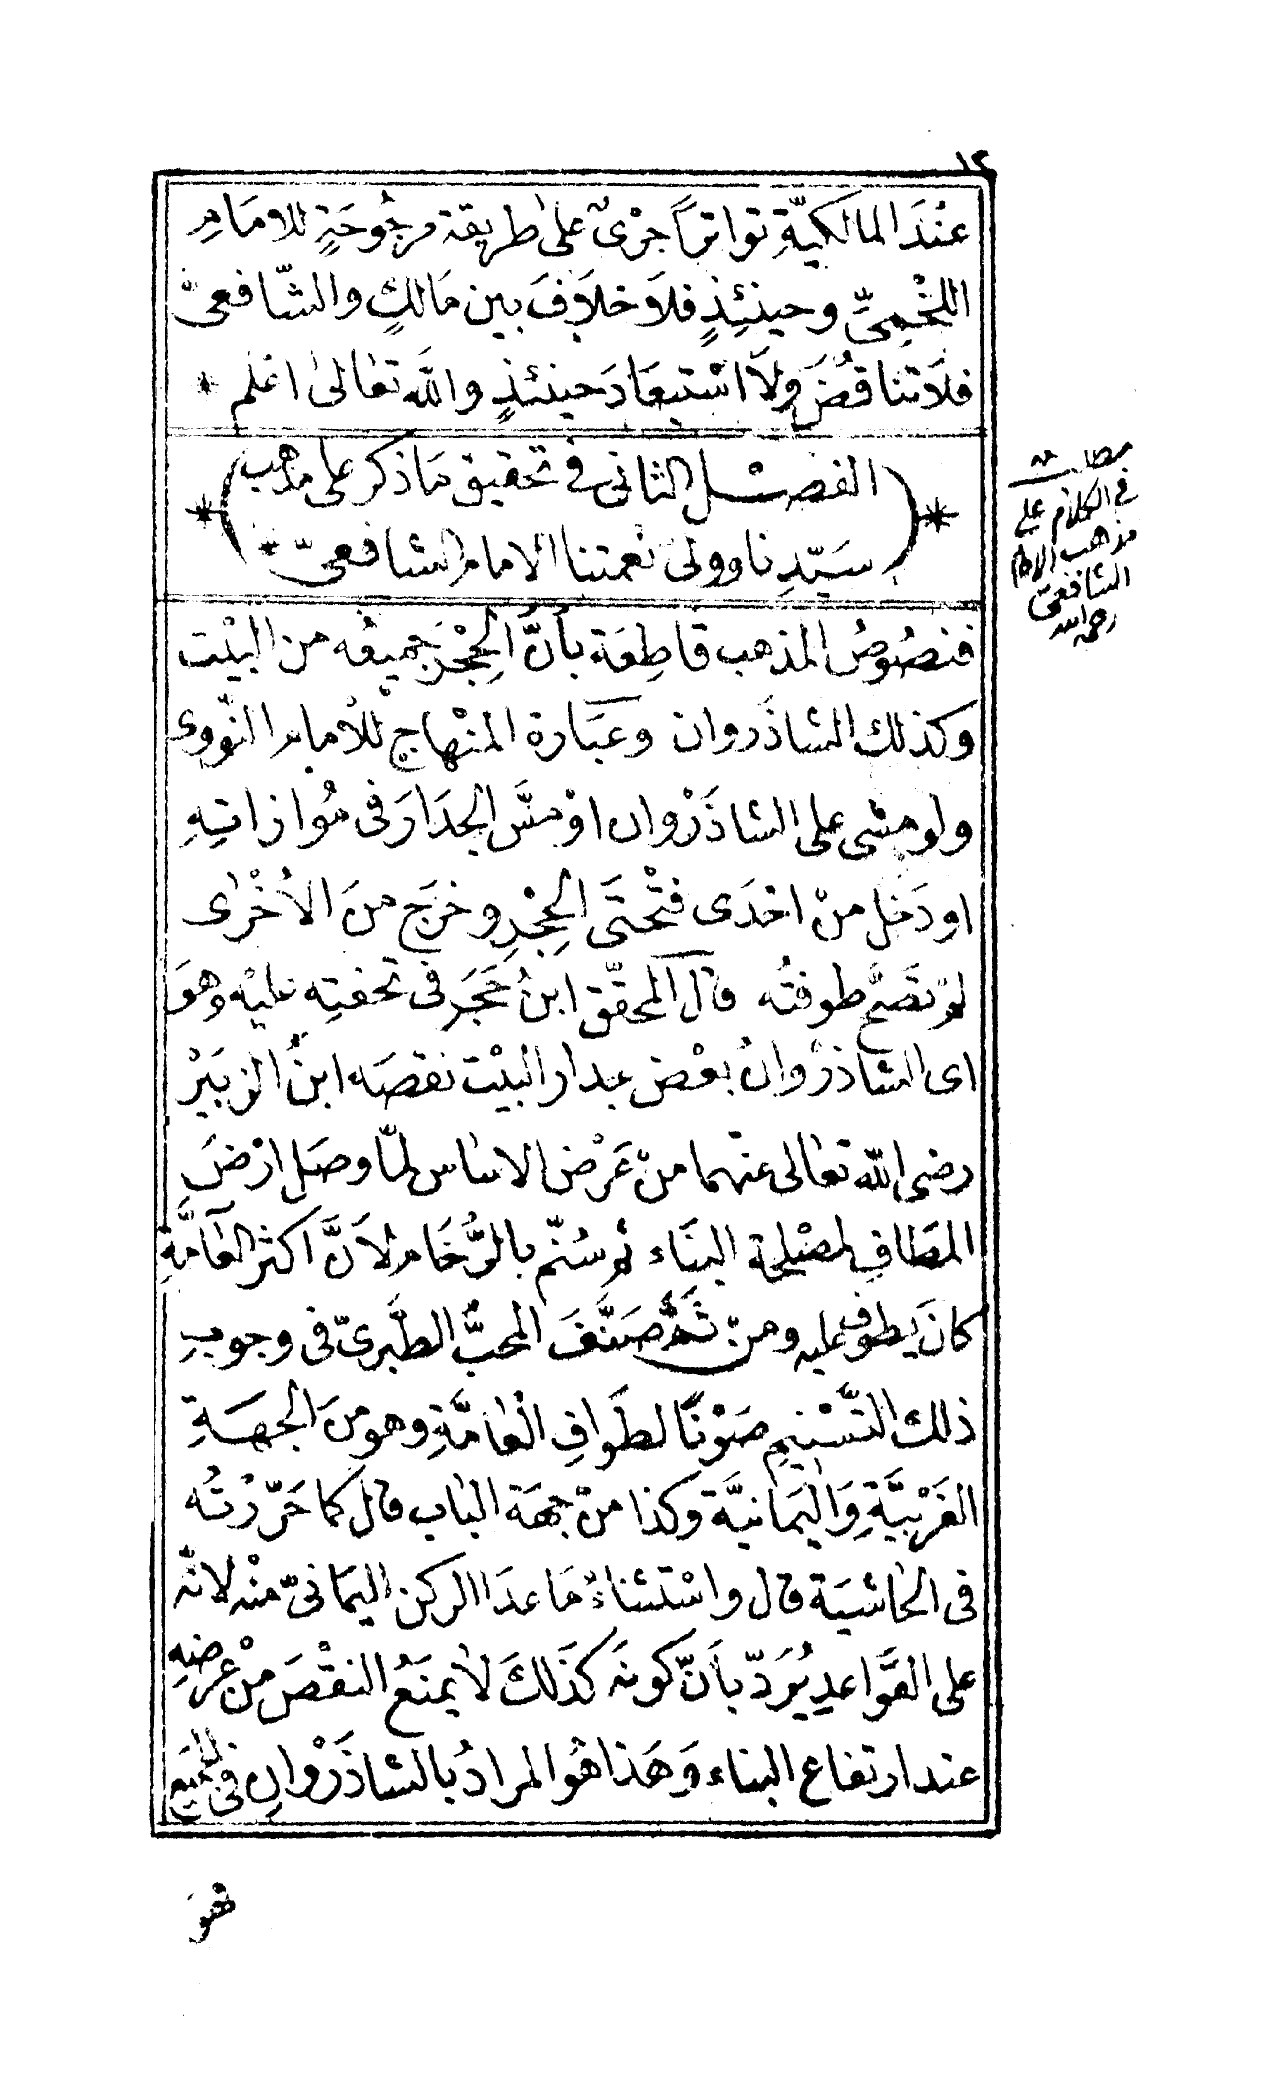 ١٢
عنْدَ المالكيَّةِ تواتراً جرْىٌ على طريقة مرجُوحَةٍ للامَامِ
اللخْمِىِّ وحينئِذٍ فلاَ خلاَفَ بين مَالكٍ والشّافعىّ
فلاَ تناقُضَ ولاَ اسْتبعَادَ حينئذٍ والله تعالىٰ اعْلم *
* (الفصْل الثانى فى تحقيق مَا ذكر على مذهب
سَيّدِنا وولى نعمتنا الامام الشافعىّ *) *
فنصُوصُ المذهب قاطِعَة بأنَّ الحِجْرَ جميعُه من البيْت
وكذلك الشاذَروان وعبَارة المنْهاج للامام النّووى
ولو مشى على الشاذَرْوان اوْ مسَّ الجدَارَ فى مُوازاتِهِ
او دَخل منْ احْدَى فتْحتَى الحِجْرِ وخرَج منَ الاُخْرٰى
لم تصَحّ طوفتُه قال المحقّق ابنُ حَجَر فى تحفتِه عليْه وهوَ
اى الشاذرْوانُ بعْض جدار البيْت نقصَه ابنُ الزبَيْرْ
رضى الله تعالى عنهما منْ عَرْض الاساس لمّا وصَل ارْضَ
المطَافِ لمصْلحة البنَاء ثم سُنّم بالرُّخَام لاَنَّ اكثر العَامَّةِ
كانَ يَطوف عليه ومنْ ثَمَّ صَنَّفَ المحبُّ الطَّبَرىّ فى وجوبِ
ذلك التَّسْنيم صَوْنًا لطَوافِ الْعَامَّةِ وهو منَ الجهَةِ
الغَرْبيَّةِ وَاليَمَانيَّة وكذا منْ جهَة البَاب قال كما حَرّرْتُه
فى الحَاشيَة قال واسْتثناءُ مَا عدَا الركن اليمَانىّ منْه لانّه
على القوَاعدِ يُرَدّ بأنّ كونَه كذَلكَ لاَ يمنَعُ النقْصَ منْ عرضِهِ
عند ارتفاع البناء وَهَذا هُوَ المرادُ بالشاذَرْوانِ فى الجميع
مطلب
فى الكلام على
مذهب الامام
الشافعىّ
رحمه الله
فهوَ